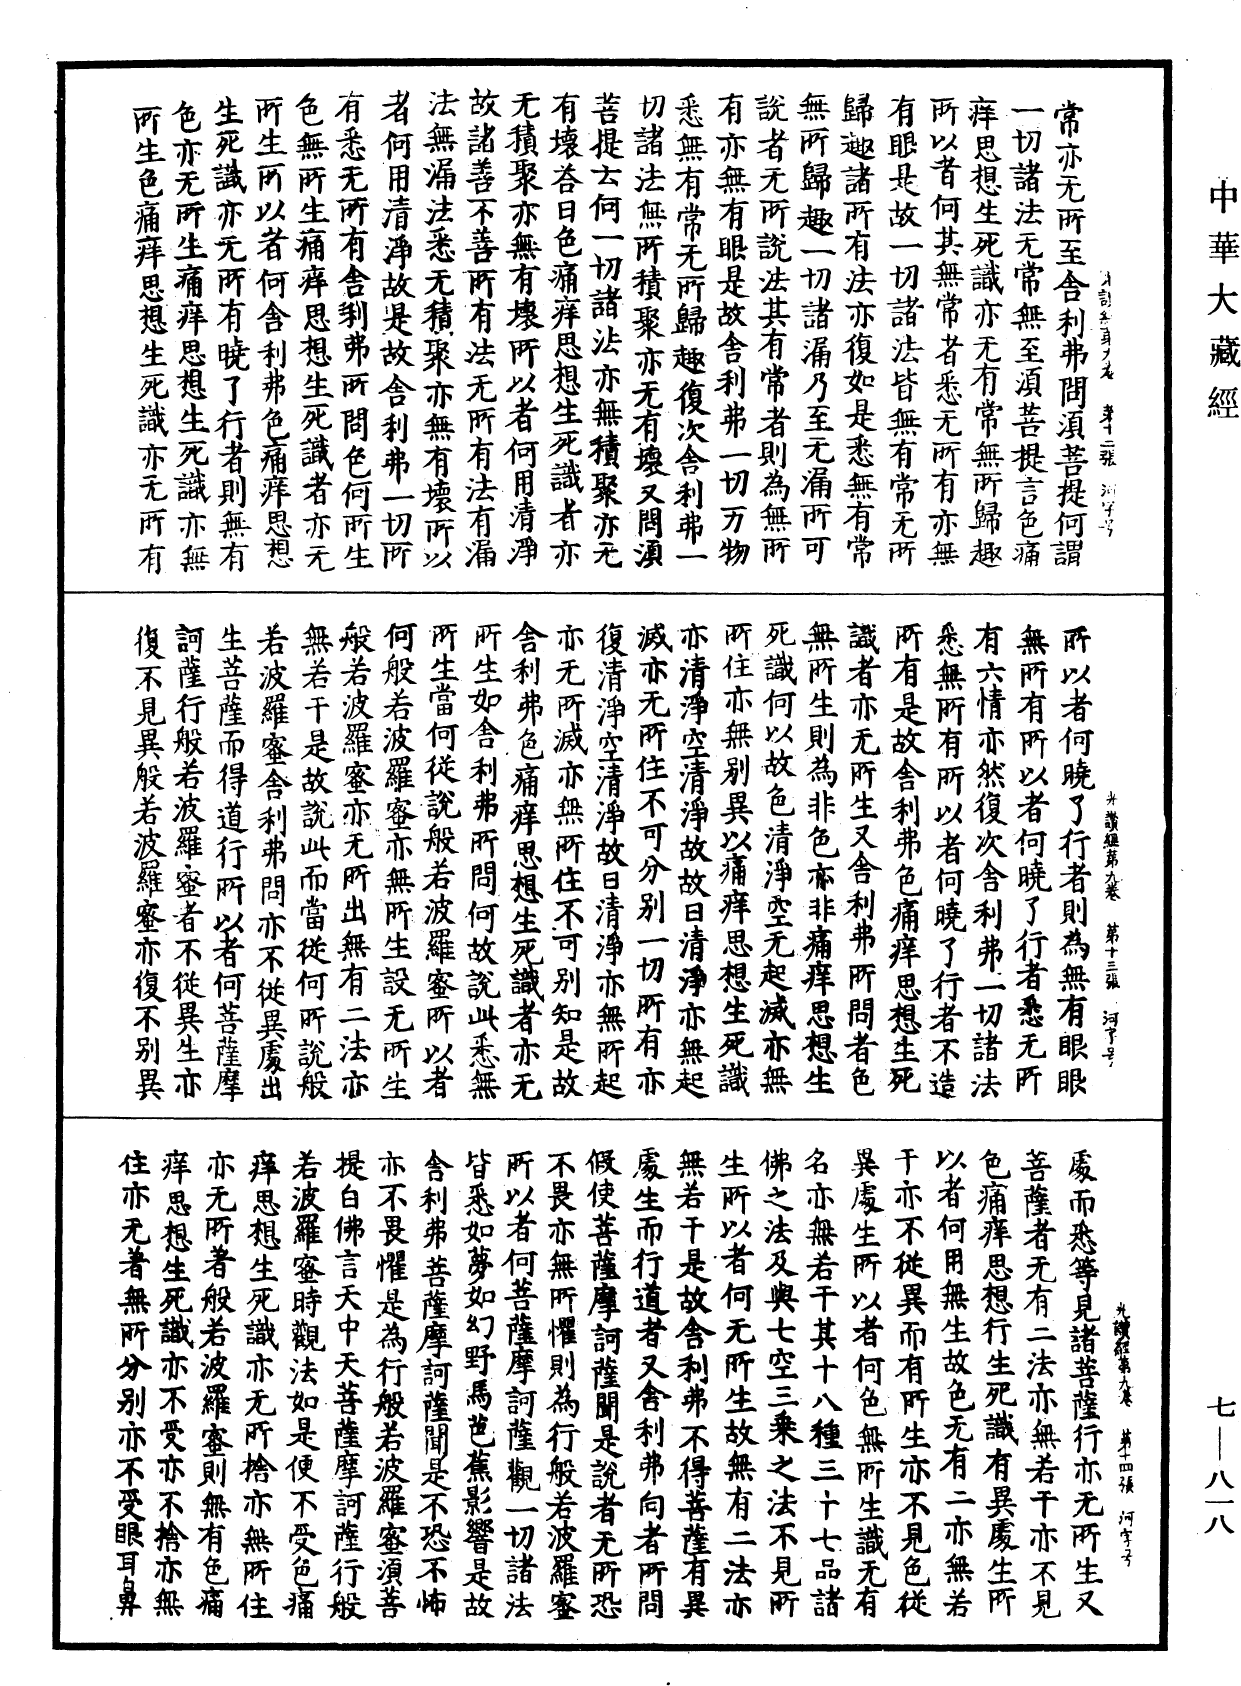 中華大藏經
常亦无所至舍利弗問須菩提何謂
一切諸法无常無至須菩提言色痛
痒思想生死識亦无有常無所歸趣
所以者何其無常者悉无所有亦無
有眼是故一切諸法皆無有常无所
歸趣諸所有法亦復如是悉無有常
無所歸趣一切諸漏乃至无漏所可
說者无所說法其有常者則為無所
有亦無有眼是故舍利弗一切万物
悉無有常无所歸趣復次舍利弗一
切諸法無所積聚亦无有壞又問須
菩提云何一切諸法亦無積聚亦无
有壞荅曰色痛痒思想生死識者亦
无積聚亦無有壞所以者何用清淨
故諸善不善所有法无所有法有漏
法無漏法悉无積聚亦無有壞所以
者何用清淨故是故舍利弗一切所
有悉无所有舍利弗所問色何所生
色無所生痛痒思想生死識者亦无
所生所以者何舍利弗色痛痒思想
生死識亦无所有曉了行者則無有
色亦无所生痛痒思想生死識亦無
所生色痛痒思想生死識亦无所有
光讚經第九卷 第十三張 河字号
所以者何曉了行者則為無有眼眼
無所有所以者何曉了行者悉无所
有六情亦然復次舍利弗一切諸法
悉無所有所以者何曉了行者不造
所有是故舍利弗色痛痒思想生死
識者亦无所生又舍利弗所問者色
無所生則為非色亦非痛痒思想生
死識何以故色清淨空无起滅亦無
所住亦無别異以痛痒思想生死識
亦清淨空清淨故故曰清淨亦無起
滅亦无所住不可分别一切所有亦
復清淨空清淨故曰清淨亦無所起
亦无所滅亦無所住不可别知是故
舍利弗色痛痒思想生死識者亦无
所生如舍利弗所問何故說此悉無
所生當何從說般若波羅蜜所以者
何般若波羅蜜亦無所生設无所生
般若波羅蜜亦无所出無有二法亦
無若干是故說此而當從何所說般
若波羅蜜舍利弗問亦不從異處出
生菩薩而得道行所以者何菩薩摩
訶薩行般若波羅蜜者不從異生亦
復不見異般若波羅蜜亦復不别異
光讚經第九卷 第十四張 河字号
處而悉等見諸菩薩行亦无所生又
菩薩者无有二法亦無若干亦不見
色痛痒思想行生死識有異處生所
以者何用無生故色无有二亦無若
干亦不從異而有所生亦不見色從
異處生所以者何色無所生識无有
名亦無若干其十八種三十七品諸
佛之法及與七空三乘之法不見所
生所以者何无所生故無有二法亦
無若干是故舍利弗不得菩薩有異
處生而行道者又舍利弗向者所問
假使菩薩摩訶薩聞是說者无所恐
不畏亦無所懼則為行般若波羅蜜
所以者何菩薩摩訶薩觀一切諸法
皆悉如夢如幻野馬芭蕉影響是故
舍利弗菩薩摩訶薩聞是不恐不怖
亦不畏懼是為行般若波羅蜜須菩
提白佛言天中天菩薩摩訶薩行般
若波羅蜜時觀法如是便不受色痛
痒思想生死識亦无所捨亦無所住
亦无所著般若波羅蜜則無有色痛
痒思想生死識亦不受亦不捨亦無
住亦无著無所分别亦不受眼耳鼻
七—八一八